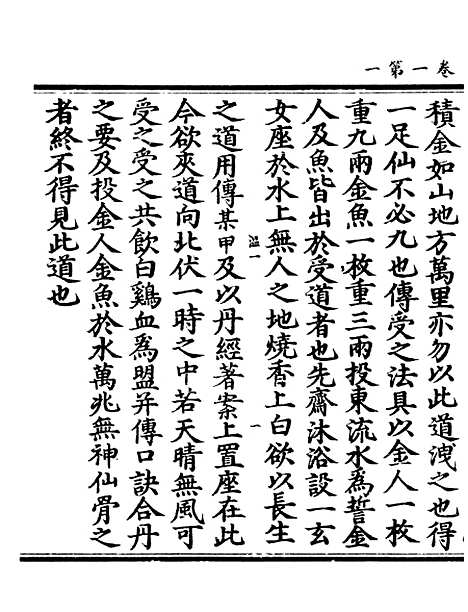 卷一第一
積金如山地方萬里亦勿以此道洩之也得
一足仙不必九也傳受之法具以金人一枚
重九兩金魚一枚重三兩投東流水爲誓金
人及魚皆出於受道者也先齋沐浴設一玄
女座於水上無人之地燒香上白欲以長生
之道用傳某甲及以丹經著案上置座在此
今欲夾道向北伏一時之中若天晴無風可
受之受之共飲白鷄血爲盟并傳口訣合丹
之要及投金人金魚於水萬兆無神仙骨之
者終不得見此道也
温一
一